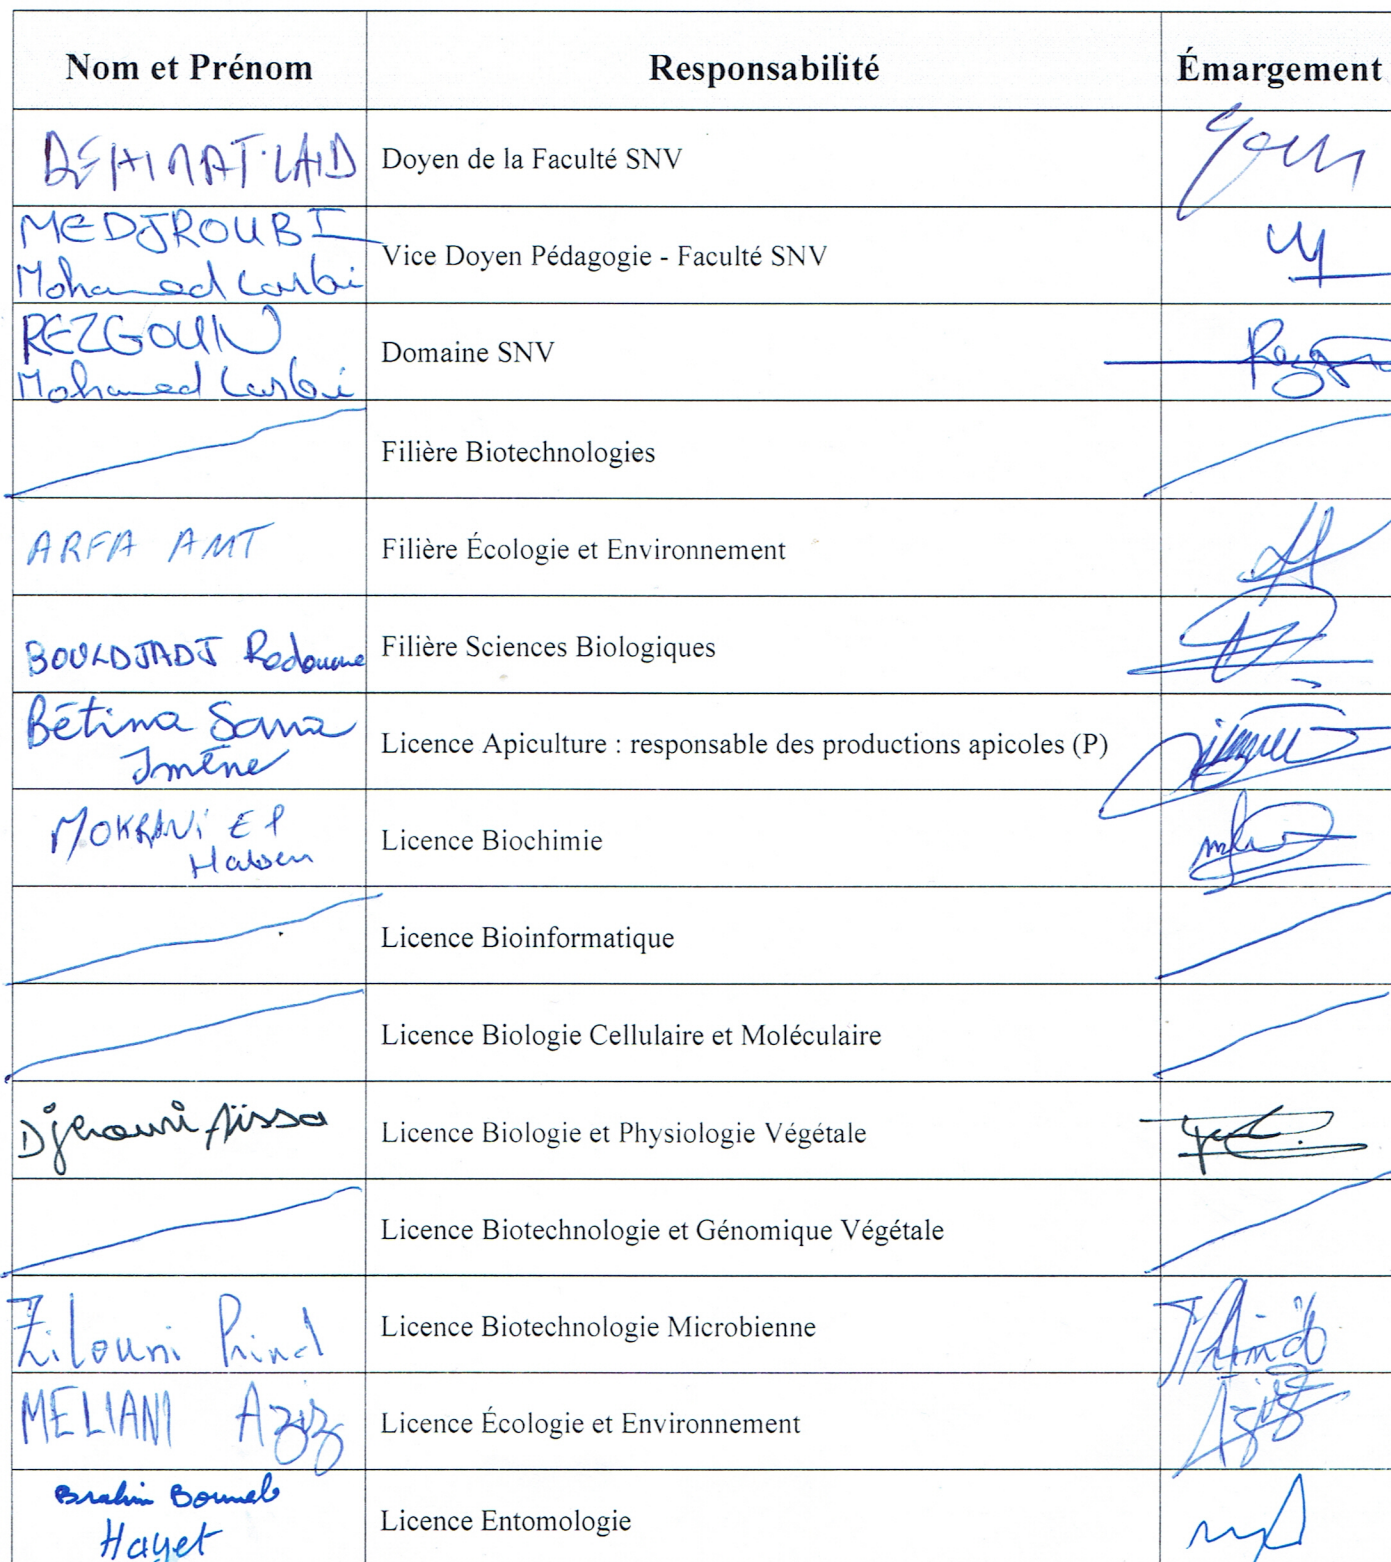 Nom et Prénom Responsabilité Émargement
DEHIMAT LAID Doyen de la Faculté SNV
MEDJROUBI
Mohamed Larbi Vice Doyen Pédagogie - Faculté SNV
REZGOUN
Mohamed Larbi Domaine SNV
Filière Biotechnologies
ARFA AMT Filière Écologie et Environnement
BOULDJADJ Redouane Filière Sciences Biologiques
Bétina Sara
Imène Licence Apiculture : responsable des productions apicoles (P)
MOKRANI EP
Licence Biochimie
Licence Bioinformatique
Licence Biologie Cellulaire et Moléculaire
Djerouni Aïssa Licence Biologie et Physiologie Végétale
Licence Biotechnologie et Génomique Végétale
Licence Biotechnologie Microbienne
MELIANI Aziz Licence Écologie et Environnement
Brahim Bounab
Hayet Licence Entomologie